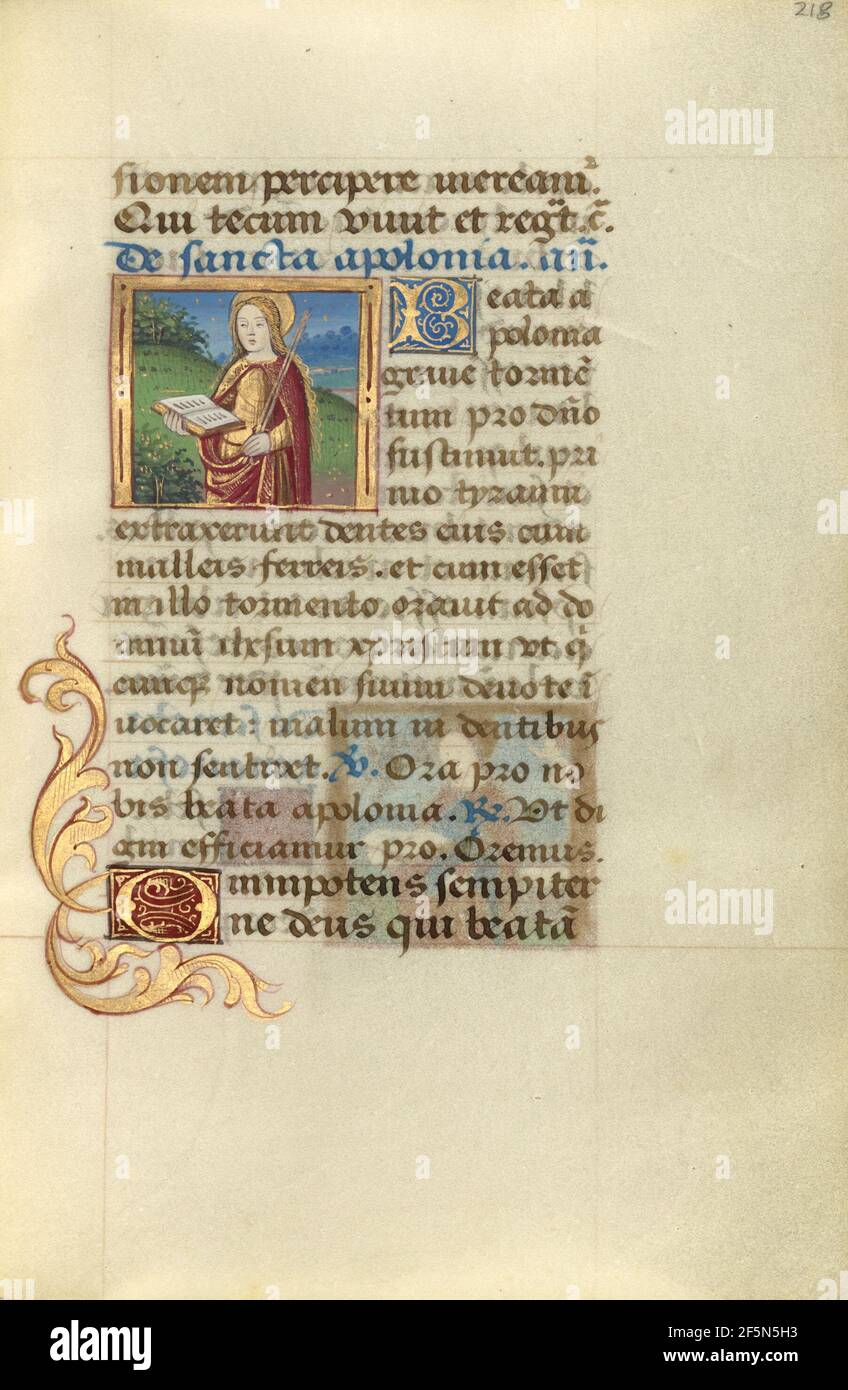 218
sionem percipere mereamr̃.
Qui tecum viuit et regt̃. c̃.
De sancta apolonia. añ.
Beata a
polonia
graue tormẽ
tum pro dño
sustinuit. pri
mo tyranni
extraxerunt dentes eius cum
malleis ferreis. et cum esset
in illo tormento orauit ad do
minũ ihesum xpristum vt q̃
cunqꝫ nomen suum deuote ĩ
uocaret: malum in dentibus
non sentiret. V. Ora pro no
bis beata apolonia. Re. Vt di
gni efficiamur pro. Oremus.
Omnipotens sempiter
ne deus qui beatã
alamy
Image ID: 2F5N5H3
www.alamy.com